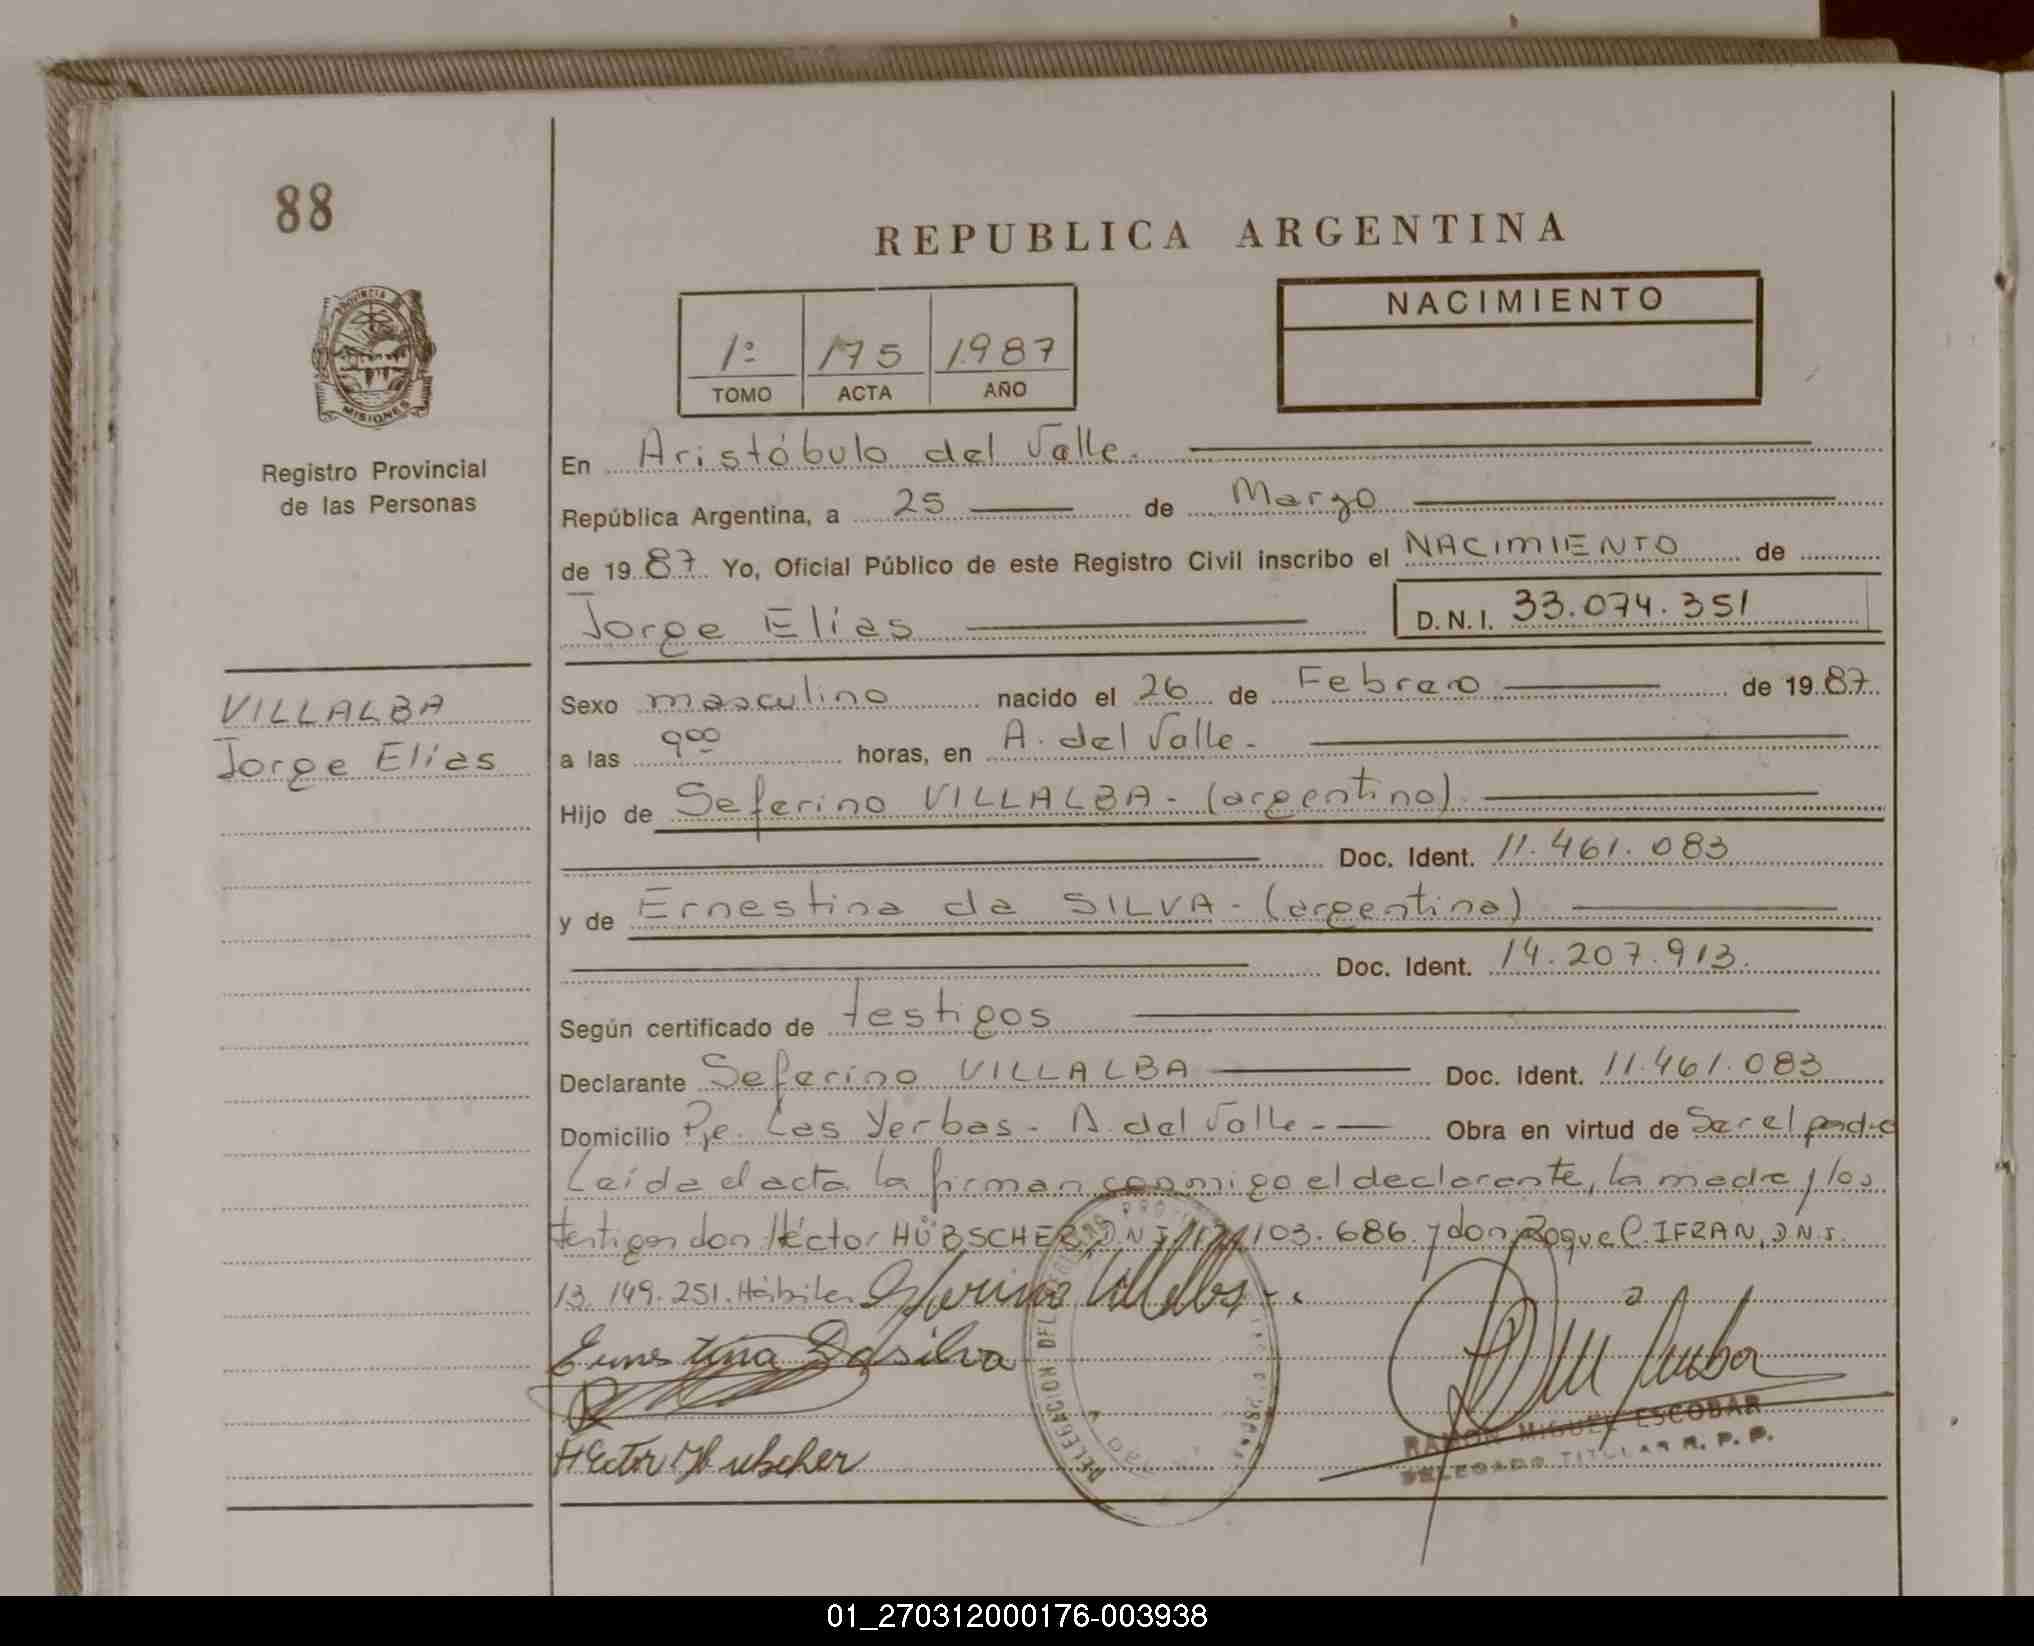 88
REPUBLICA ARGENTINA
PROVINCIA
MISIONES
Registro Provincial
de las Personas
1º 175 1987
TOMO ACTA AÑO
NACIMIENTO
En Aristóbulo del Valle.
República Argentina, a 25 de Marzo
de 1987 Yo, Oficial Público de este Registro Civil inscribo el NACIMIENTO de
Jorge Elías D.N.I. 33.074.351
VILLALBA
Jorge Elías
Sexo masculino nacido el 26 de Febrero de 1987
a las 900 horas, en A. del Valle.
Hijo de Seferino VILLALBA - (argentino)
Doc. Ident. 11.461.083
y de Ernestina da SILVA - (argentina)
Doc. Ident. 14.207.913.
Según certificado de testigos
Declarante Seferino VILLALBA Doc. Ident. 11.461.083
Domicilio Pje. Las Yerbas - A. del Valle - Obra en virtud de Ser el padre
Leída el acta la firman conmigo el declarante, la madre y los
testigos don Héctor HÜBSCHER, DNI 103.686. y don Roque C. IFRAN, D.N.I.
13.149.251. Hábiles Seferino Villalba
Ernestina Dasilva
Hector Hubscher
DELEGACION DEL
RAMON MIGUEL ESCOBAR
DELEGADO TITULAR R. P. P.
01_270312000176-003938